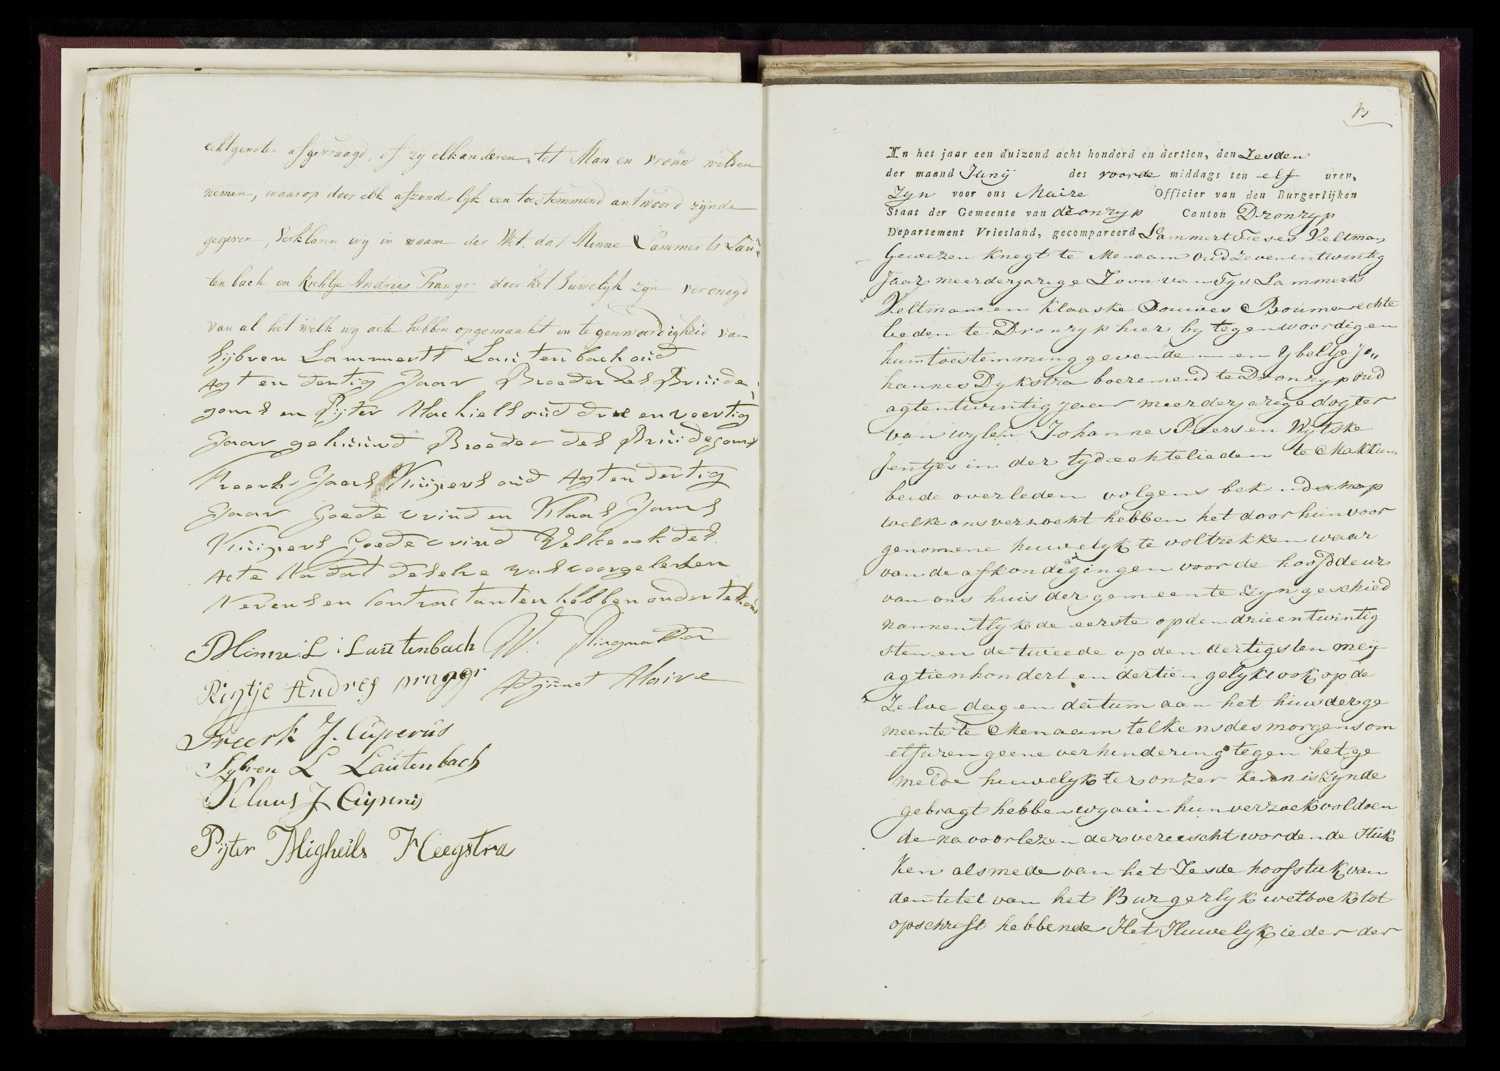 echtgenoten afgevraagd, of zy elkanderen tot Man en vrouw willen
nemen, waarop door elk afzonderlyk een toestemmend antwoord zijnde
gegeven, Verklaren wy in naam der Wet, dat Minne Lammerts Lau
tenbach en Rigtje Andries Prange door het huwelyk zyn verenigd
van al het welk wy acte hebben opgemaakt in tegenwoordigheid van
Sijbren Lammerts Lautenbach oud
Agt en dertig Jaar Broeder des Bruide
goms en Pijter Machiels oud drie en veertig
Jaar gehuuwd Broeder des Bruidegoms
Freerk Jaars Kuipers oud Agt en dertig
Jaar goede vrind en Klaas Jans
Kuipers Goede vrind Welke ook des
Acte Na dat deselve was voorgelesen
Nevens en Contractanten hebben ondertekend
Minne L: Lautenbach W.
Rigtje Andres praggi Adjunct Maire
Freerk J. Cuperus
Sybren L Lautenbach
Klaas J Cuperus
Pijter Migheils Heegstra
In het jaar een duizend acht honderd en dertien, den Zesden
der maand Junij des voorde middags ten elf uren,
Zyn voor ons Maire Officier van den Burgerlijken
Staat der Gemeente van dronryp Canton Dronryp
Departement Vriesland, gecompareerd Lammert Tieses Veltman
Gewezen Knegt te Menaam oud Zevenentwintig
Jaar meerderjarige Zoon van Tys Lammerts
Veltman en Klaaske Douwes Bouma echte
lieden te Dronryp hier by tegenwoordigen
hun toestemming gevende en Ybeltje Jo„
hannes Dykstra boeremeid te Dronryp oud
agtentwintig jaar meerderjarige dogter
van wylen Johannes Piers en Wytske
Jentjes in der tyd echtelieden te Makkum
beide overleden volgens bekendschap
welke ons verzocht hebben het door hun voor
genomene huwelyk te voltrekken waar
van de afkondigingen voor de hoofddeur
van ons huis der gemeente zyn geschied
namentlyk de eerste op den drieentwintig
sten en de tweede op den dertigsten mey
agtienhondert en dertien gelyk ook op de
Zelve dag en datum aan het huis der ge
meente te Menaam telkens des morgens om
elf uren geene verhindering tegen het ge
melde huwelyk ter onzer kennis zynde
gebragt hebben wy aan hun verzoek voldoen
de na voorlezen der vereischt wordende Stuk
ken alsmede van het Zesde hoofstuk van
den titel van het Burgerlyk wetboek tot
opschrift hebbende Het Huwelyk ieder der